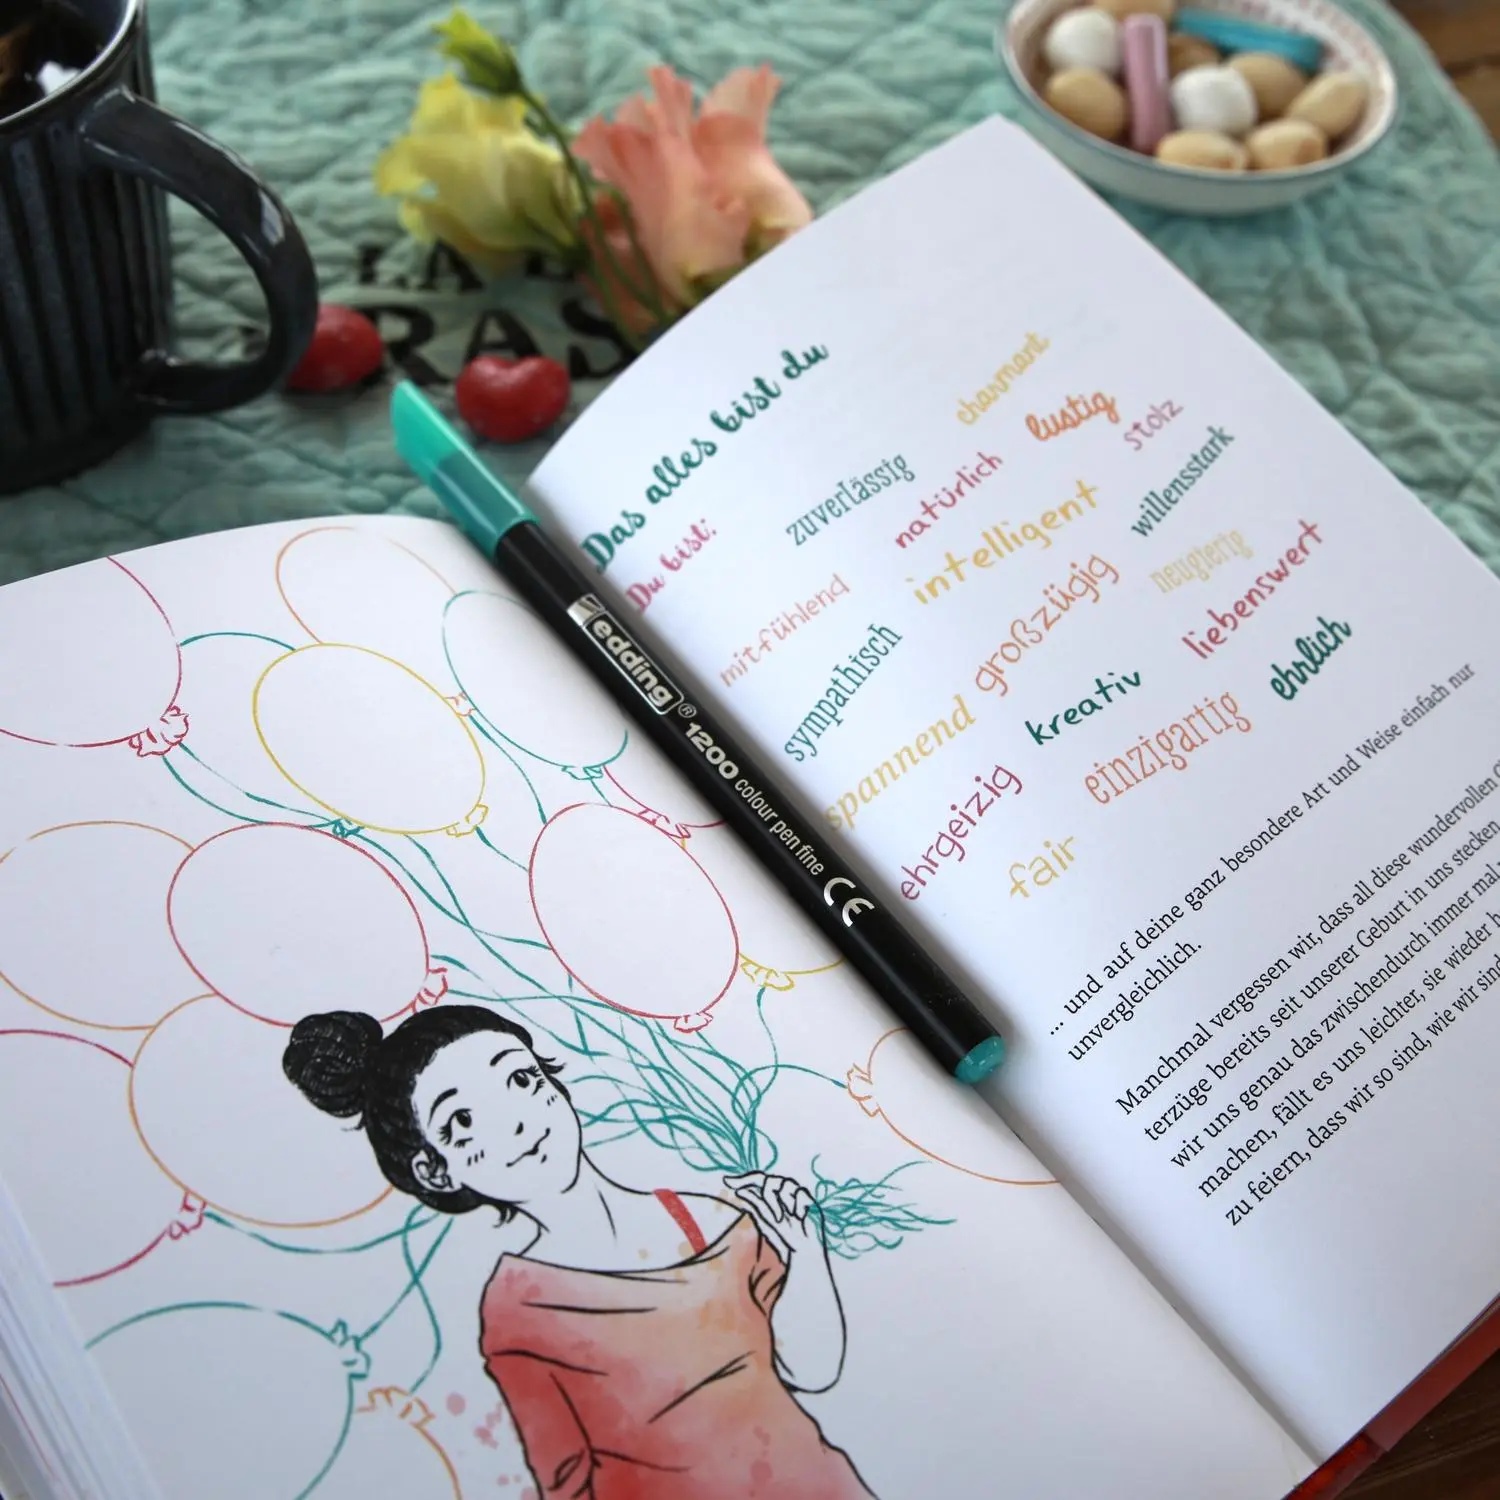 Das alles bist du
Du bist:
charmant
zuverlässig
lustig
natürlich
stolz
mitfühlend
intelligent
willensstark
sympathisch
großzügig
neugierig
spannend
kreativ
liebenswert
ehrgeizig
einzigartig
ehrlich
fair
... und auf deine ganz besondere Art und Weise einfach nur
unvergleichlich.
Manchmal vergessen wir, dass all diese wundervollen
terzüge bereits seit unserer Geburt in uns stecken
wir uns genau das zwischendurch immer mal
machen, fällt es uns leichter, sie wieder
zu feiern, dass wir so sind, wie wir sind
edding® 1200 colour pen fine CE
RAS